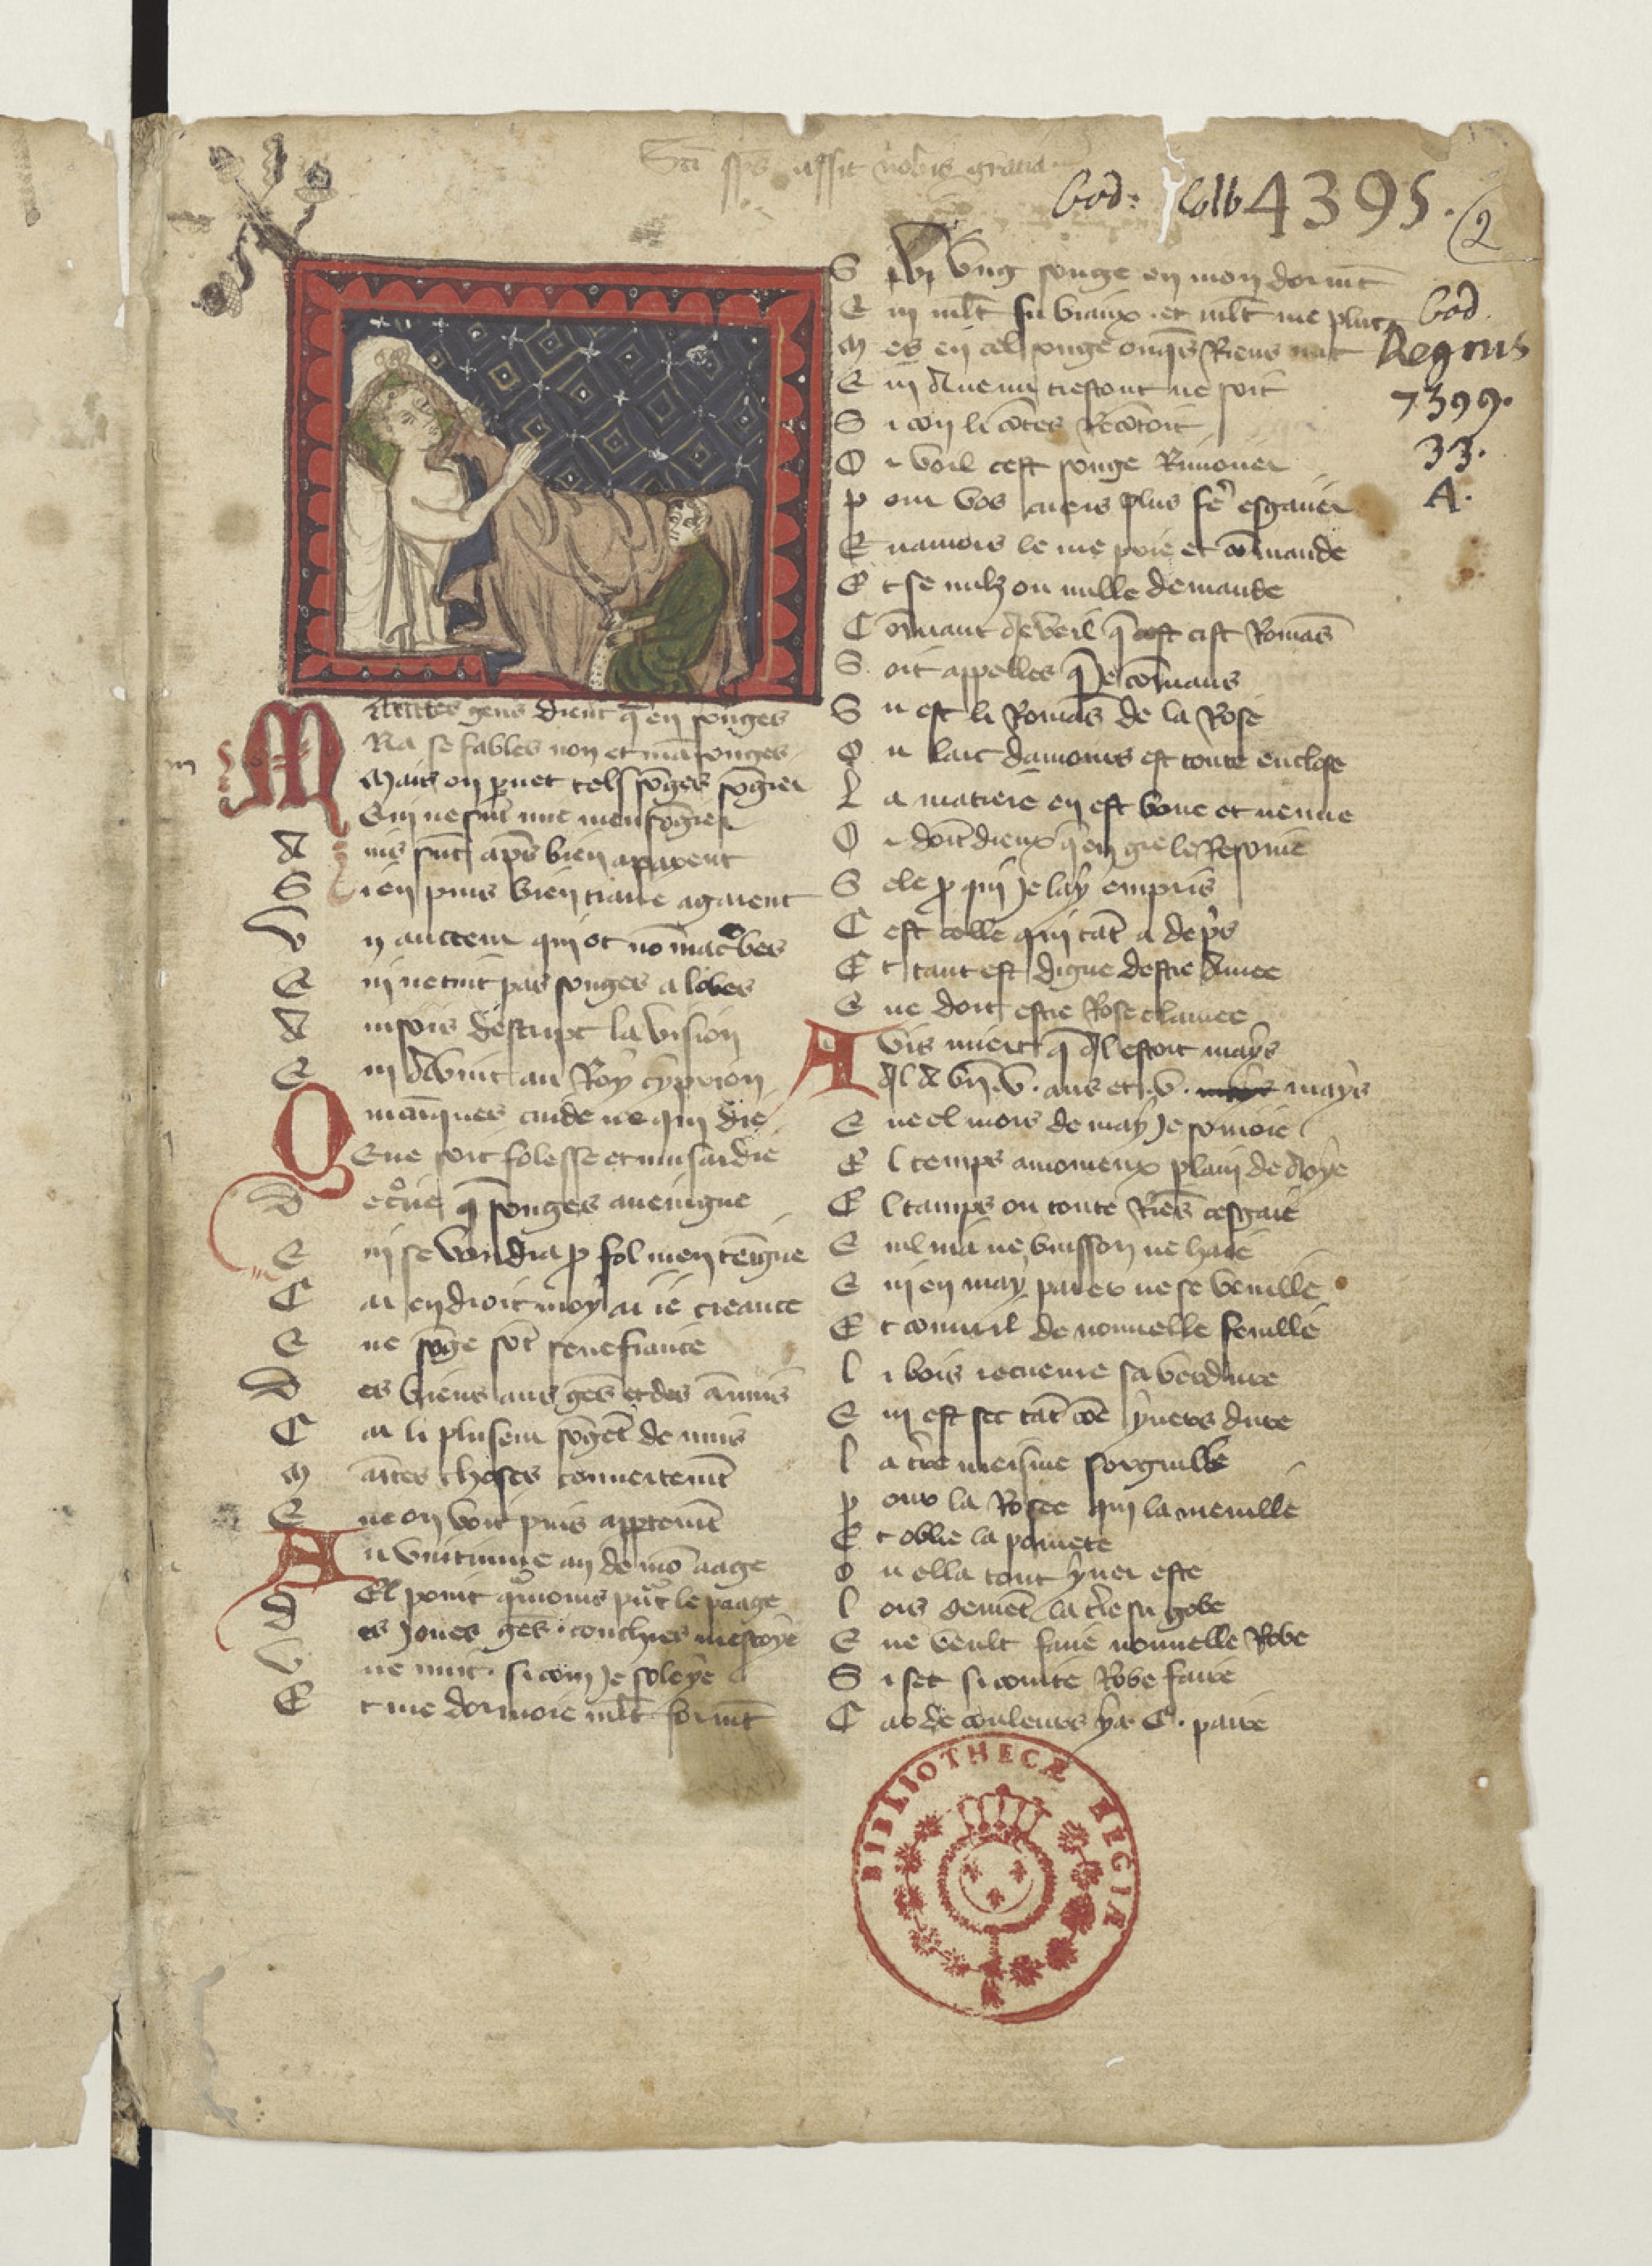 Sti sps assit nobis gratia
Cod: Colb 4395.
2
Cod.
Regius
7399.
33.
A.
Maintes gens dient q̄ en songes
Na se fables non et mansonges
Mais on puet tels sōges sōgier
Qui ne sūt mie mensōgier
A ins sūt aps̄ bien aparent
S i en puis bien traire a garent
V n aucteur qui ot nō macrobes
Q ui ne tint pas songes a lobes
A insois descript la vision
Q ui avint au Roy cyprion
Quiāqueˢ cuide ne qui die
Que soit folesse et musardie
D e croire q̄ songes aveingne
Q ui se voudra p̱ fol men tēigne
C ar endroit moy ai ie creance
Q ue sōge sōt senefiance
D es biens aus gēs et des ānuis
C ar li pluseur sōgēt de nuis
M aītes choses couuertemāt
Q ue on voit puis appertemāt
Au vintime an de mō aage
El point qᵃmours pāt le paage
D es jones gēs. couchies mestoye
V ne nuit. si com je soleye
E t me dormoie mlt̄ formāt
S i vi ung songe en mon dormāt
Q ui mlt̄ fu biaux. et mlt̄ me plut
M es en cel songe onqs̄ Riens nut
Q ui avenu trestout ne soit
S i con li cōtes Recōtoit
O r voil cest songe Rimoier
P our vos cuers plus fē esgaier
Q uamors le me prie et cōmande
E t se nulz ou nulle demande
C ōmant je veil q̄ cest cist Romās
S oit appelles q̄ je cōmans
C e est li Romās de la Rose
O u lart damours est toute enclose
L a matiere en est bone et nenue
O r doīt dieux q̄n gre le Resoiuē
C ele p̱ qui je lay empris
C est celle qui tāt a de ps̄
E t tant est digne destre amee
Q ue doit estre Rose clamee
Avis miert q̄ il estoit mays
Il a bn̄. v. ans et. v. mays
Q ue el mois de may je sonioie
E l temps amoreux plain de joye
E l tamps ou toute Riēs cesgaie
Q ue len ne buisson ne haie
Q ui en may parer ne se veuille
E t couurir de nouuelle feuille
L i bois recueure sa verdure
Q ui est sec tāt cōe yuers dure
L a tr̄e meisme sorguille
P our la Rosee qui la meuille
E t oblie la pourete
O u ella tout yuer este
L ors deuiēt la tr̄e su gobe
Q ue veult faire nouuelle Robe
S i set si cointe Robe faire
C ar de couleurs y a. C. paire
BIBLIOTHECÆ REGIÆ